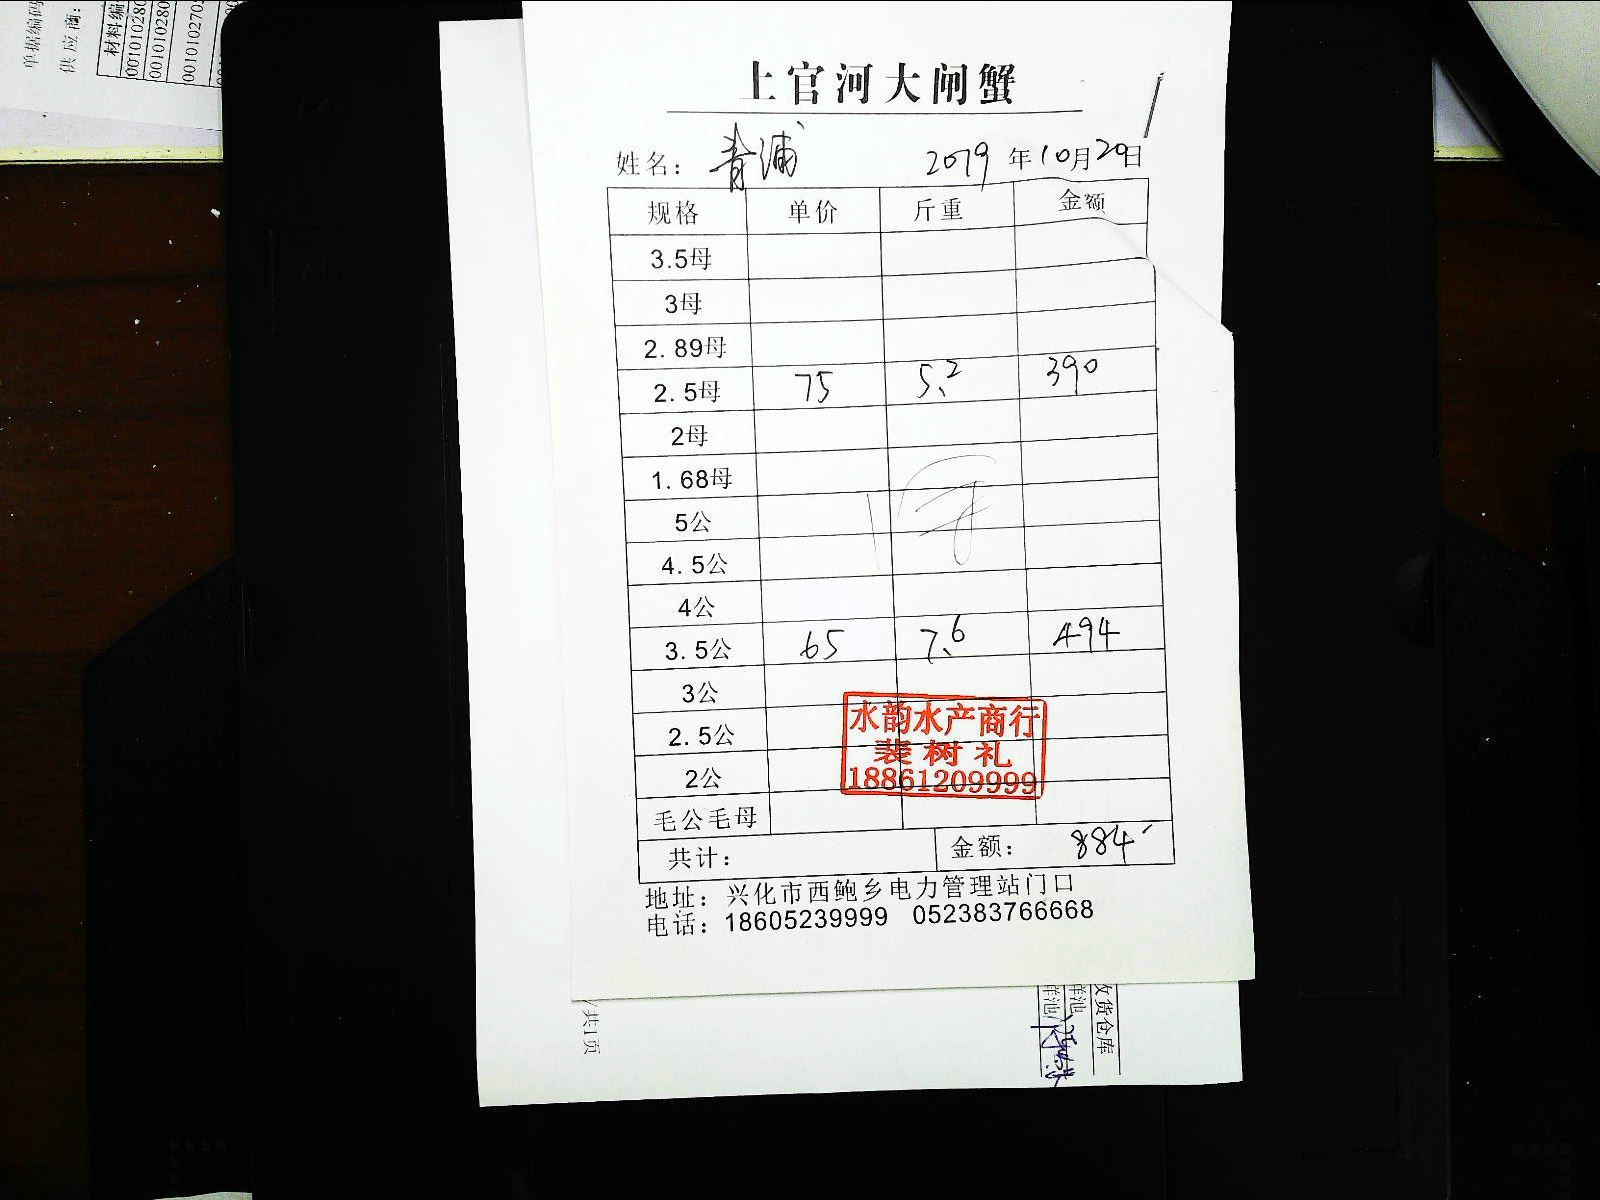 单据编码
供应商：
材料编
上官河大闸蟹
姓名： 青浦 2019年10月20日
规格 单价 斤重 金额
3.5母
3母
2.89母
2.5母 75 5.2 390
2母
1.68母
5公
4.5公
4公
3.5公 65 7.6 494
3公
2.5公
2公
毛公毛母
水韵水产商行
裴树礼
18861209999
共计： 金额： 884
地址：兴化市西鲍乡电力管理站门口
电话：18605239999 052383766668
/共1页
收货仓库